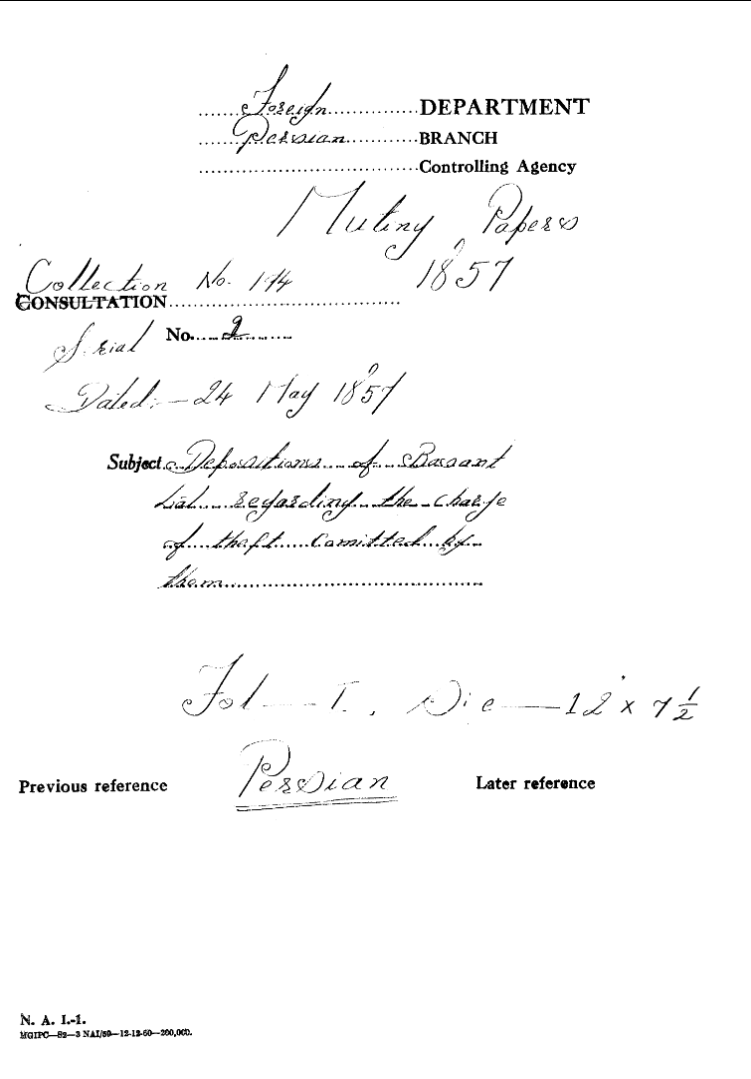 Foreign DEPARTMENT
Persian BRANCH
Controlling Agency
Mutiny Papers
1857
Collection No. 194
CONSULTATION
Serial No. 2
Dated:- 24 May 1857
Subject Depositions of Basant
Lal regarding the charge
of theft Comitted by
them
Fol — I. Size — 12 x 7 1/2
Previous reference Persian Later reference
N. A. I.-1.
MGIPC—S2—3 NAI/59—12-12-60—200,000.